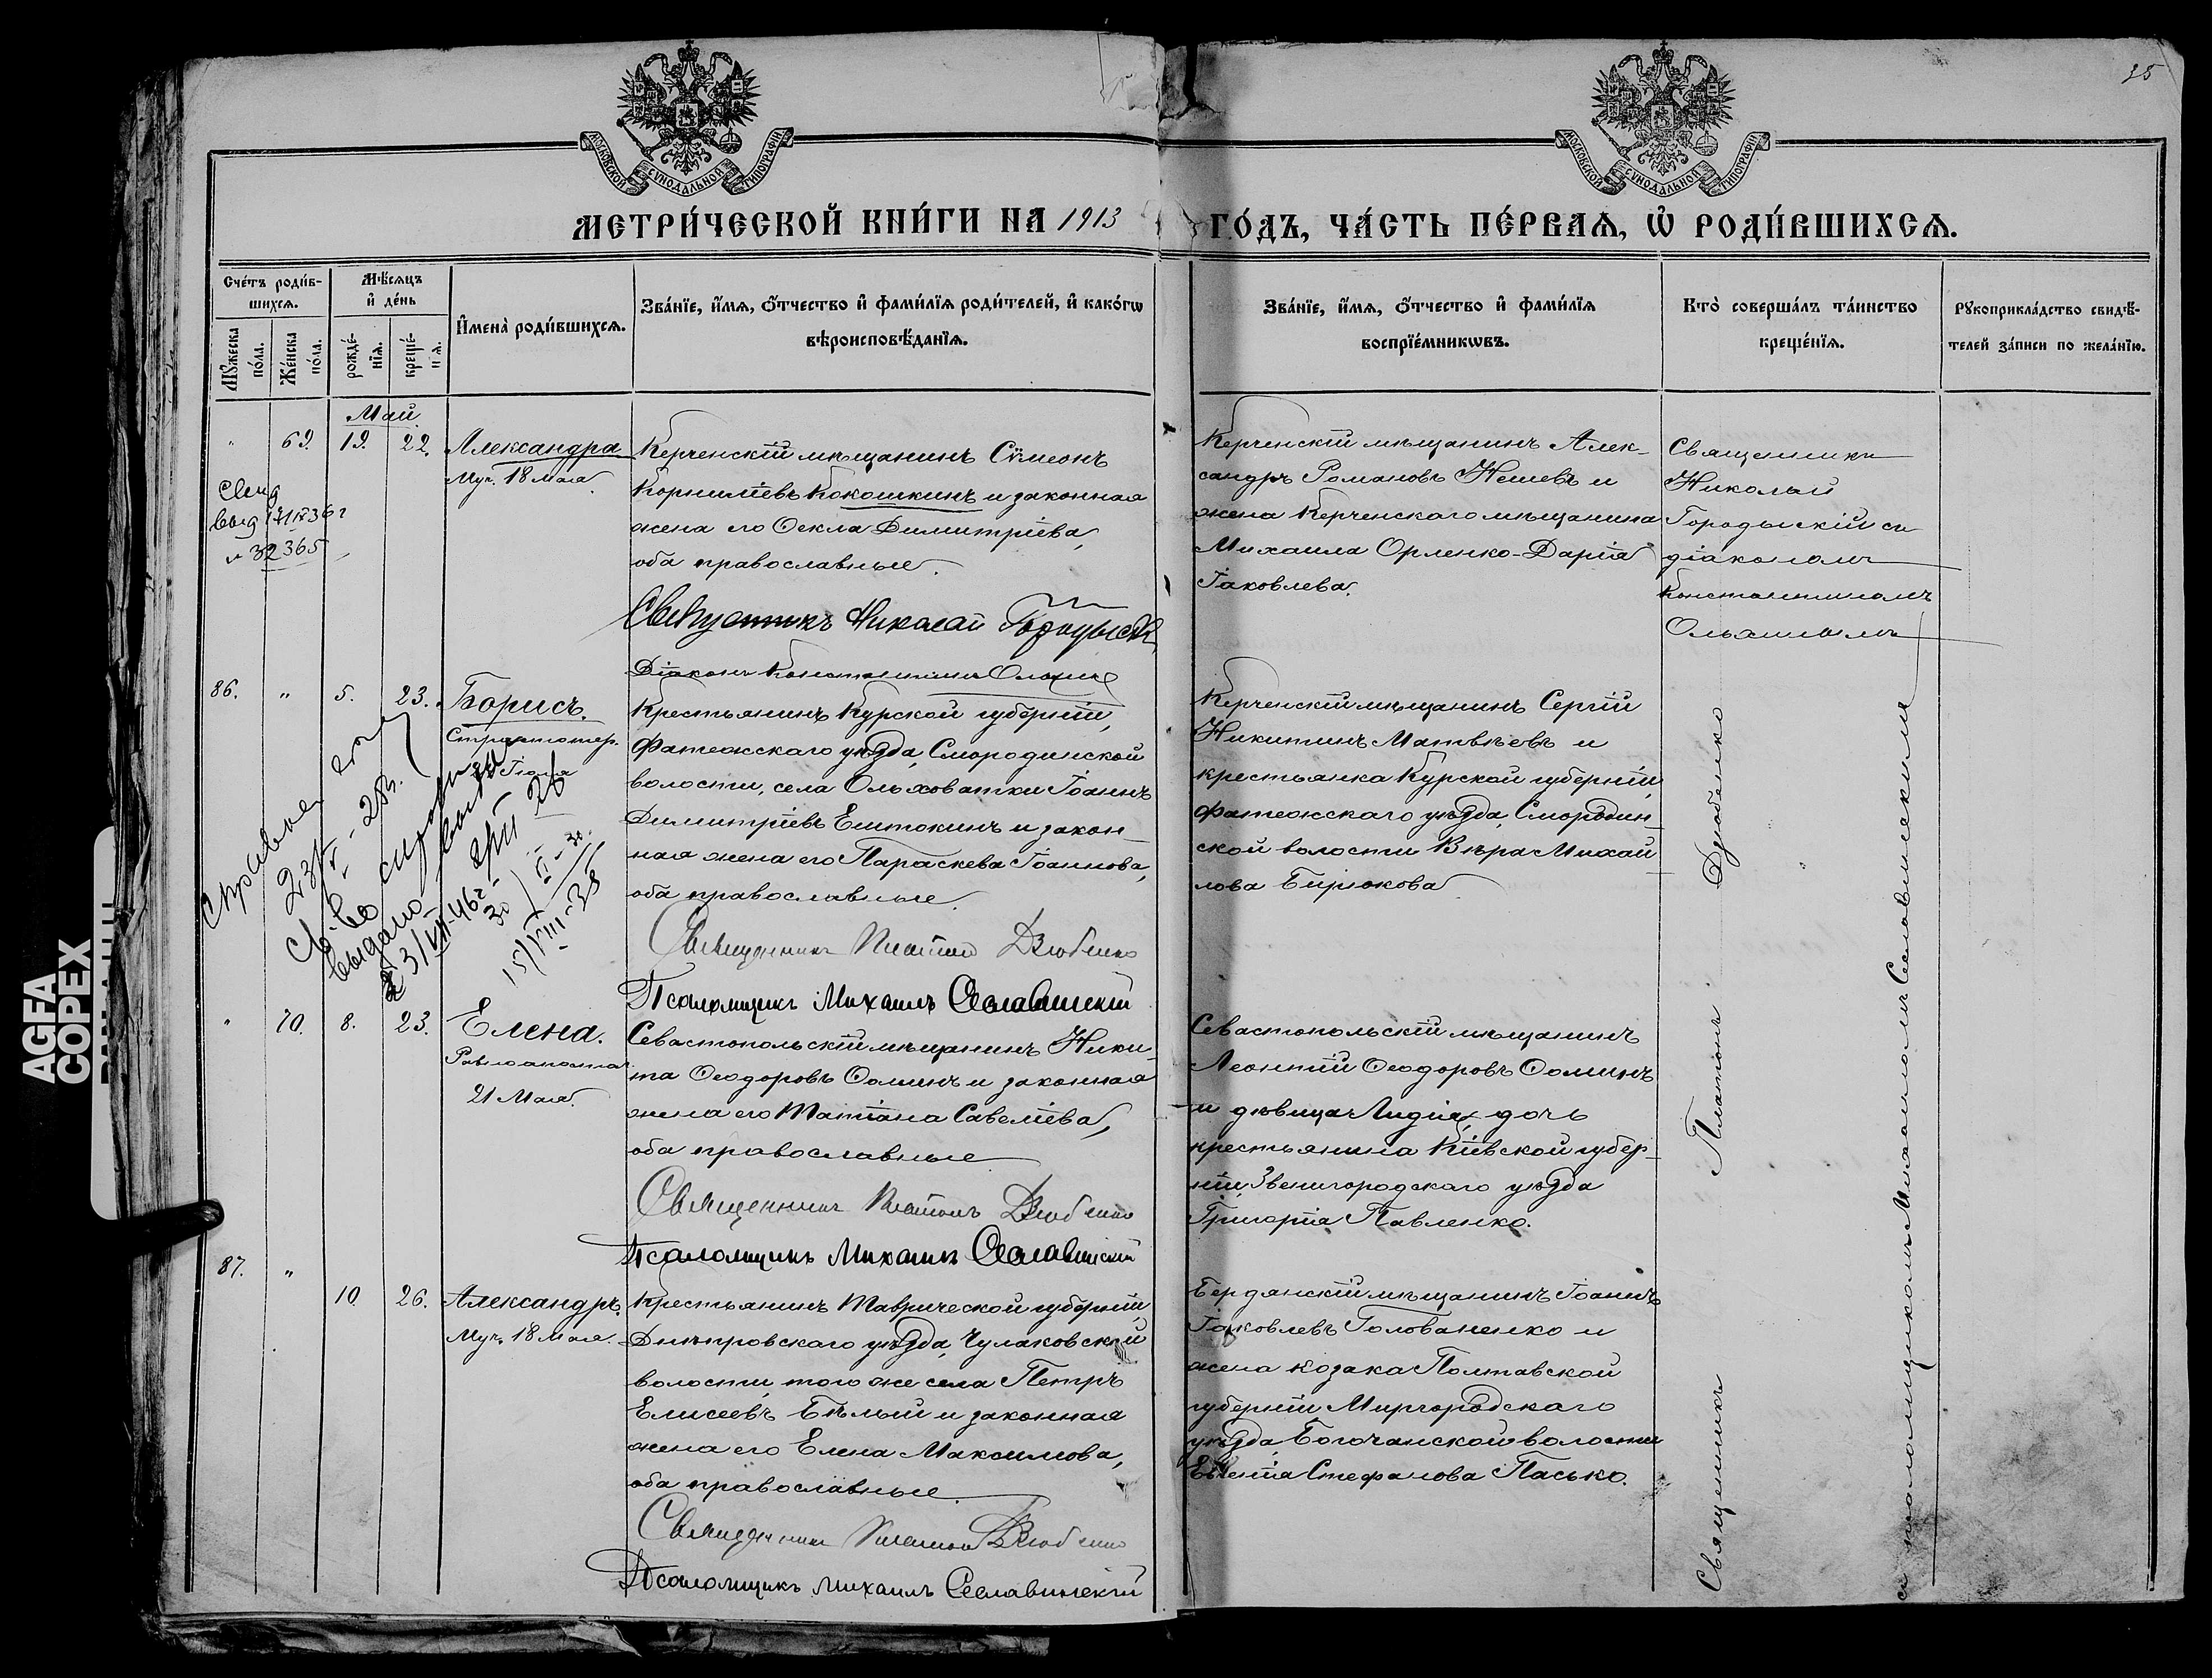 25
МОСКОВСКОЙ СѴНОДАЛЬНОЙ ТИПОГРАФІИ
МОСКОВСКОЙ СѴНОДАЛЬНОЙ ТИПОГРАФІИ
МЕТРИ́ЧЕСКОЙ КНИ́ГИ НА 1913 ГО́ДЪ, ЧА́СТЬ ПЕ́РВАѦ, Ѡ҆ РОДИ́ВШИХСѦ.
Сче́тъ роди́в-
шихсѧ.
Мꙋ́жеска
по́ла.
Же́нска
по́ла.
Мѣ́сѧцъ
и҆ де́нь
рожде́-
нїѧ.
креще́-
нїѧ.
И҆мена̀ роди́вшихсѧ.
Зва́нїе, и҆́мѧ, ѻ҆́тчество и҆ фами́лїѧ роди́телей, и҆ како́гѡ
вѣроисповѣ́данїѧ.
Зва́нїе, и҆́мѧ, ѻ҆́тчество и҆ фами́лїѧ
воспрїе́мникѡвъ.
Кто̀ соверша́лъ та́инство
креще́нїѧ.
Рꙋкоприкла́дство свидѣ́-
телей за́писи по жела́нїю.
Май.
" 69. 19. 22. Александра
Муч. 18 Мая.
Свид
выд
№ 32365
Керченскій мѣщанинъ Сѵмеонъ
Корниліевъ Кокошкинъ и законная
жена его Ѳекла Димитріева,
оба православные.
Священникъ Николай Городыскій
Діаконъ Константинъ Ольхин
Керченскій мѣщанинъ Алек-
сандръ Романовъ Нешевъ и
жена Керченскаго мѣщанина
Михаила Орленко-Дарія
Іаковлева.
Священникъ
Николай
Городыскій съ
діакономъ
Константиномъ
86. " 5. 23. Борисъ.
Страстотер.
справка
23/V-28г.
выдано
15/VIII-38
Крестьянинъ Курской губерніи,
Фатежскаго уѣзда, Смородинской
волости, села Ольховатки Іоаннъ
Димитріевъ Ештокинъ и закон-
ная жена его Параскева Іоаннова,
оба православные.
Священникъ Платонъ Дзюбенко
Псаломщикъ Михаилъ Сеславинскій
Керченскій мѣщанинъ Сергій
Никитинъ Матвѣевъ и
крестьянка Курской губерніи,
Фатежскаго уѣзда, Смородин-
ской волости Вѣра Михай
лова Бирюкова
" 70. 8. 23. Елена.
Равноапостол
21 Мая.
Севастопольскій мѣщанинъ Ники-
та Ѳеодоровъ Ѳоминъ и законная
жена его Татіана Савеліева,
оба православные
Священникъ Платонъ Дзюбенко
Псаломщикъ Михаилъ Сеславинскій
Севастопольскій мѣщанинъ
Леонтій Ѳеодоровъ Ѳоминъ
и дѣвица Лидія, дочь
крестьянина Кіевской губер-
ніи, Звенигородскаго уѣзда
Григорія Павленко.
87. " 10. 26. Александръ.
Муч. 18 Мая.
Крестьянинъ Таврической губерніи,
Днѣпровскаго уѣзда, Чулаковской
волости, того же села Петръ
Елисеевъ Бѣлый и законная
жена его Елена Максимова,
оба православные.
Священникъ Платонъ Дзюбенко
Псаломщикъ Михаилъ Сеславинскій
Бердянскій мѣщанинъ Іоаннъ
Іаковлевъ Голованенко и
жена козака Полтавской
губерніи Миргородскаго
уѣзда Богочанской волости
Стефанова Пасько.
Священникъ Платонъ Дзюбенко
съ псаломщикомъ Михаиломъ Сеславинскимъ
AGFA
COPEX